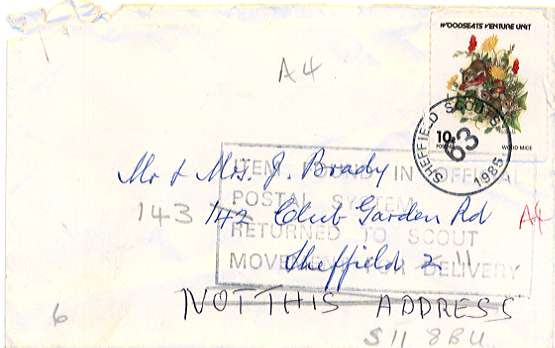 WOODSEATS VENTURE UNIT
A4
10p
POSTAGE
WOOD MICE
SHEFFIELD SCOUTS
63
1985
Mr & Mrs. J. Brady
143 142 Club Garden Rd A4
Sheffield 2 11
ITEM FOUND IN OFFICIAL
POSTAL SYSTEM
RETURNED TO SCOUT
MOVEMENT FOR DELIVERY
NOT THIS ADDRESS
6
S11 8BU